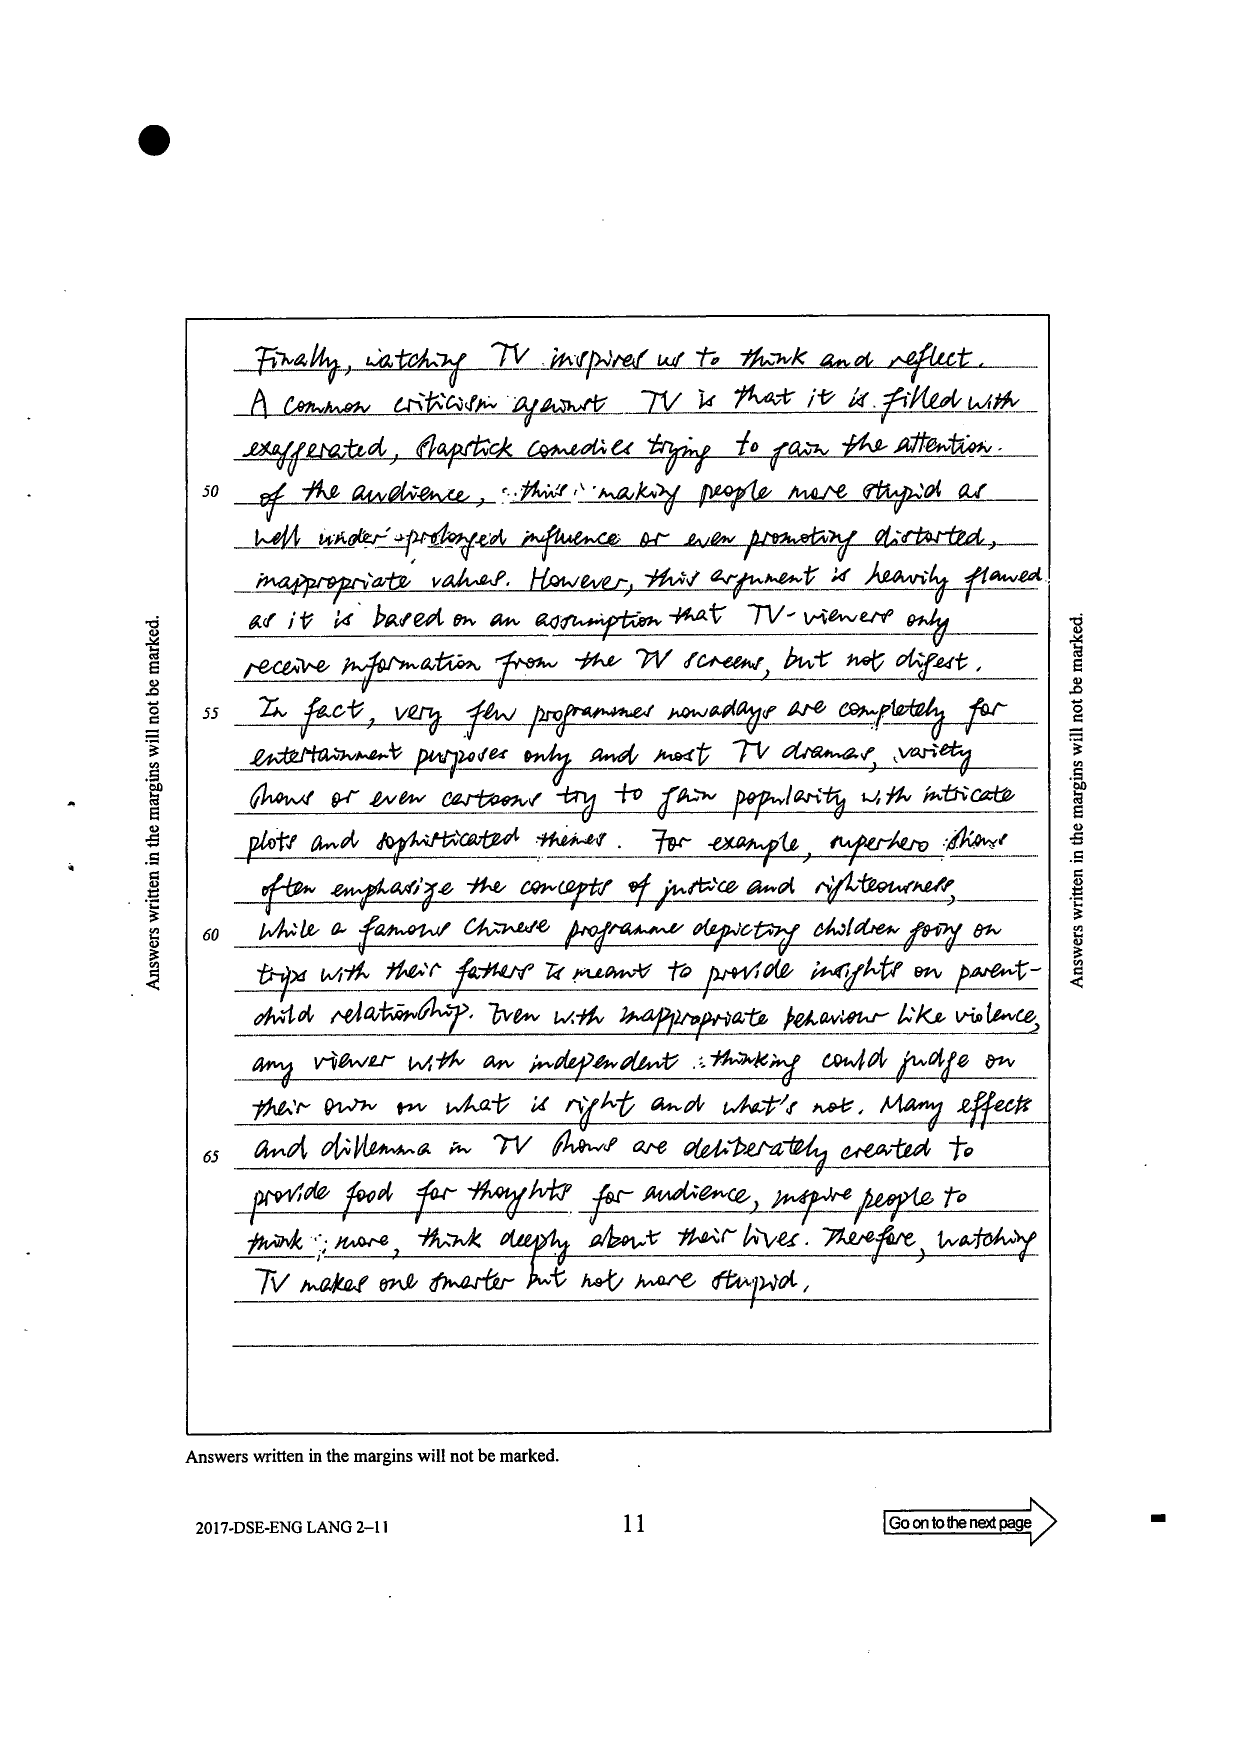 Finally, watching TV inspires us to think and reflect.
A common criticism against TV is that it is filled with
exaggerated, slapstick comedies trying to gain the attention.
50 of the audience, this making people more stupid as
well under prolonged influence or even promoting distorted,
inappropriate values. However, this argument is heavily flawed
as it is based on an assumption that TV-viewers only
receive information from the TV screens, but not digest.
55 In fact, very few programmes nowadays are completely for
entertainment purposes only and most TV dramas, variety
shows or even cartoons try to gain popularity with intricate
plots and sophisticated themes. For example, superhero shows
often emphasize the concepts of justice and righteousness,
60 while a famous Chinese programme depicting children going on
trips with their fathers is meant to provide insights on parent-
child relationship. Even with inappropriate behaviour like violence,
any viewer with an independent thinking could judge on
their own on what is right and what's not. Many effects
65 and dillemma in TV shows are deliberately created to
provide food for thoughts for audience, inspire people to
think more, think deeply about their lives. Therefore, watching
TV makes one smarter but not more stupid.
Answers written in the margins will not be marked.
Answers written in the margins will not be marked.
Answers written in the margins will not be marked.
2017-DSE-ENG LANG 2–11
11
Go on to the next page